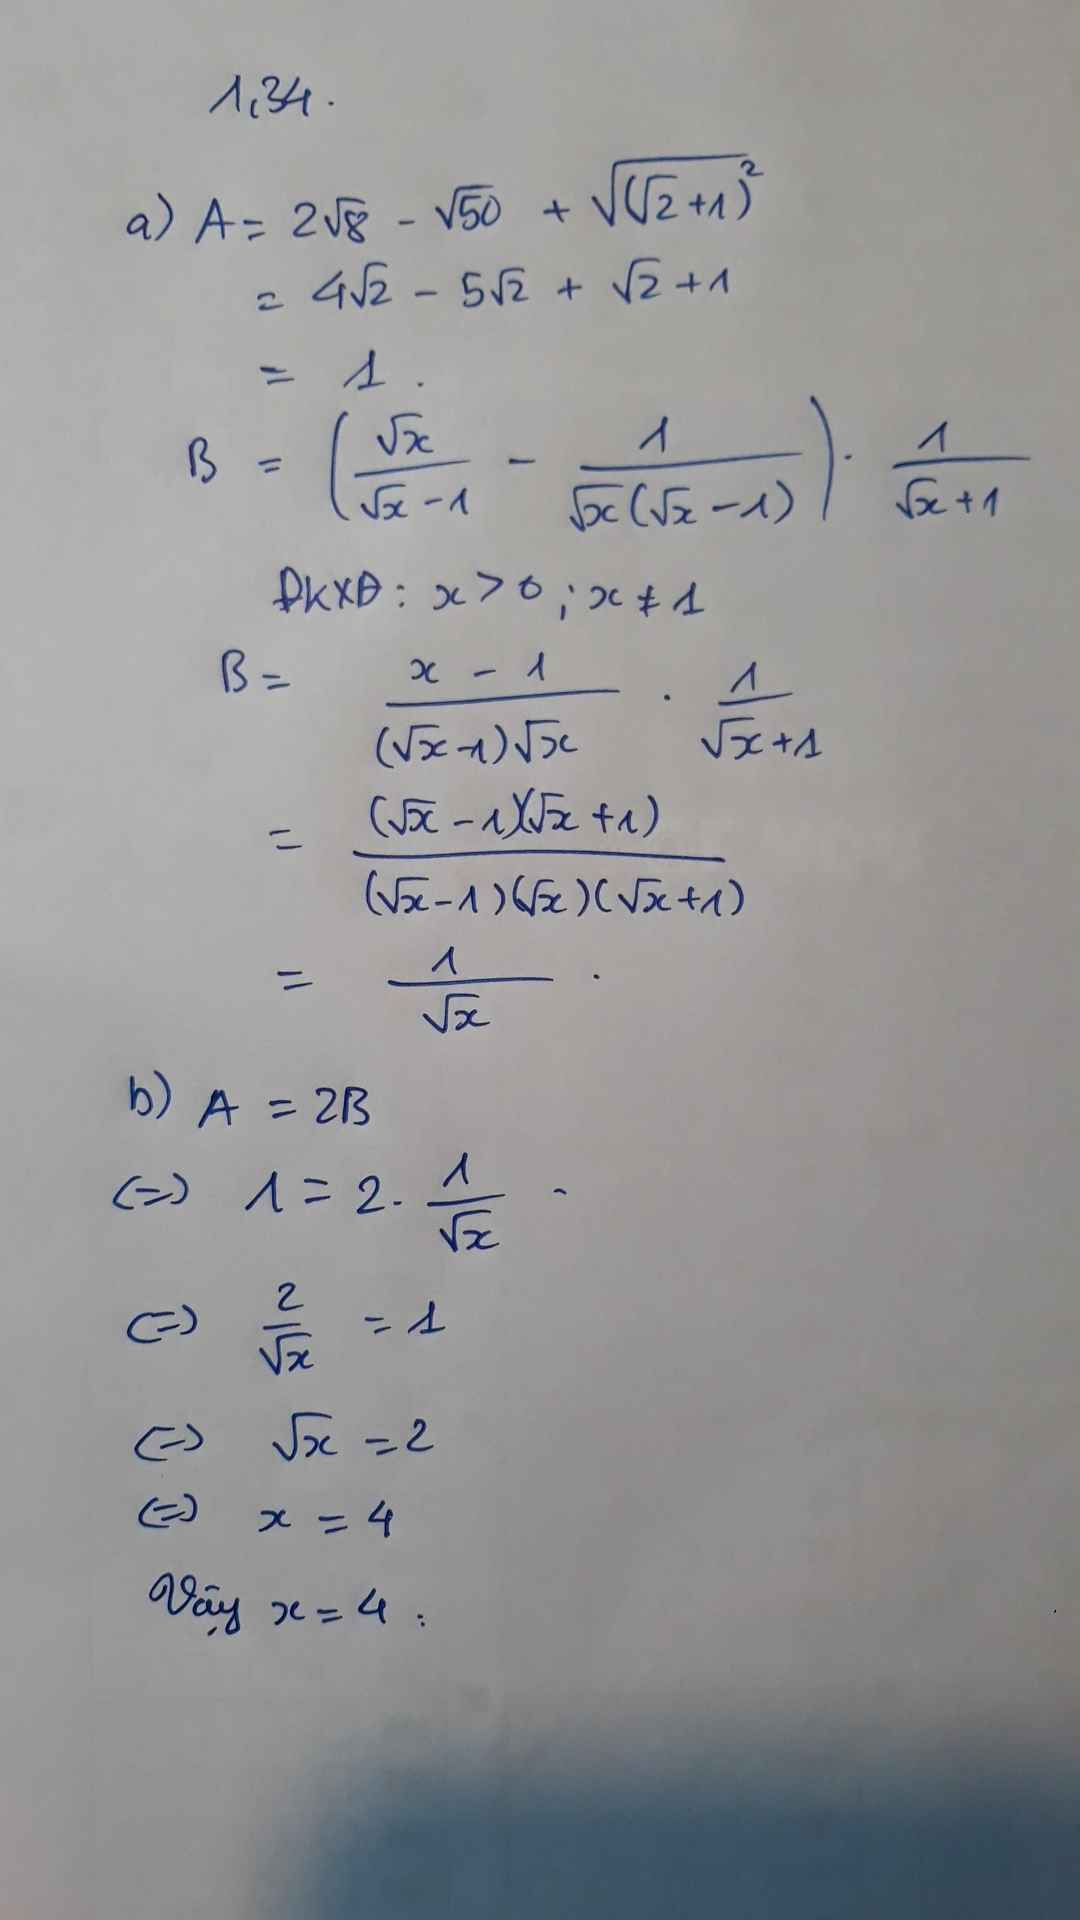 1,34.
a) A = 2√8 - √50 + √(√2+1)²
= 4√2 - 5√2 + √2+1
= 1.
B = (√x/(√x-1) - 1/(√x(√x-1))) . 1/(√x+1)
ĐKXĐ: x > 0 ; x ≠ 1
B = (x - 1)/((√x-1)√x) . 1/(√x+1)
= (√x - 1)(√x + 1)/((√x-1)(√x)(√x+1))
= 1/√x .
b) A = 2B
(=) 1 = 2. 1/√x .
(=) 2/√x = 1
(=) √x = 2
(=) x = 4
Vậy x = 4 .